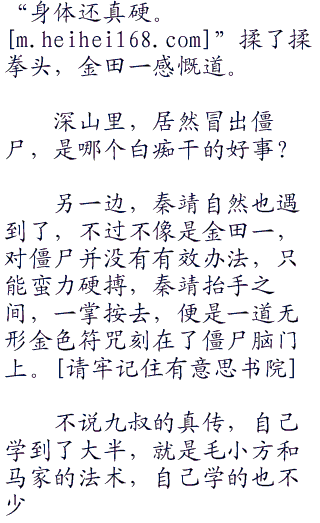 “身体还真硬。
[m.heihei168.com]”揉了揉
拳头，金田一感慨道。
深山里，居然冒出僵
尸，是哪个白痴干的好事？
另一边，秦靖自然也遇
到了，不过不像是金田一，
对僵尸并没有有效办法，只
能蛮力硬搏，秦靖抬手之
间，一掌按去，便是一道无
形金色符咒刻在了僵尸脑门
上。[请牢记住有意思书院]
不说九叔的真传，自己
学到了大半，就是毛小方和
马家的法术，自己学的也不
少